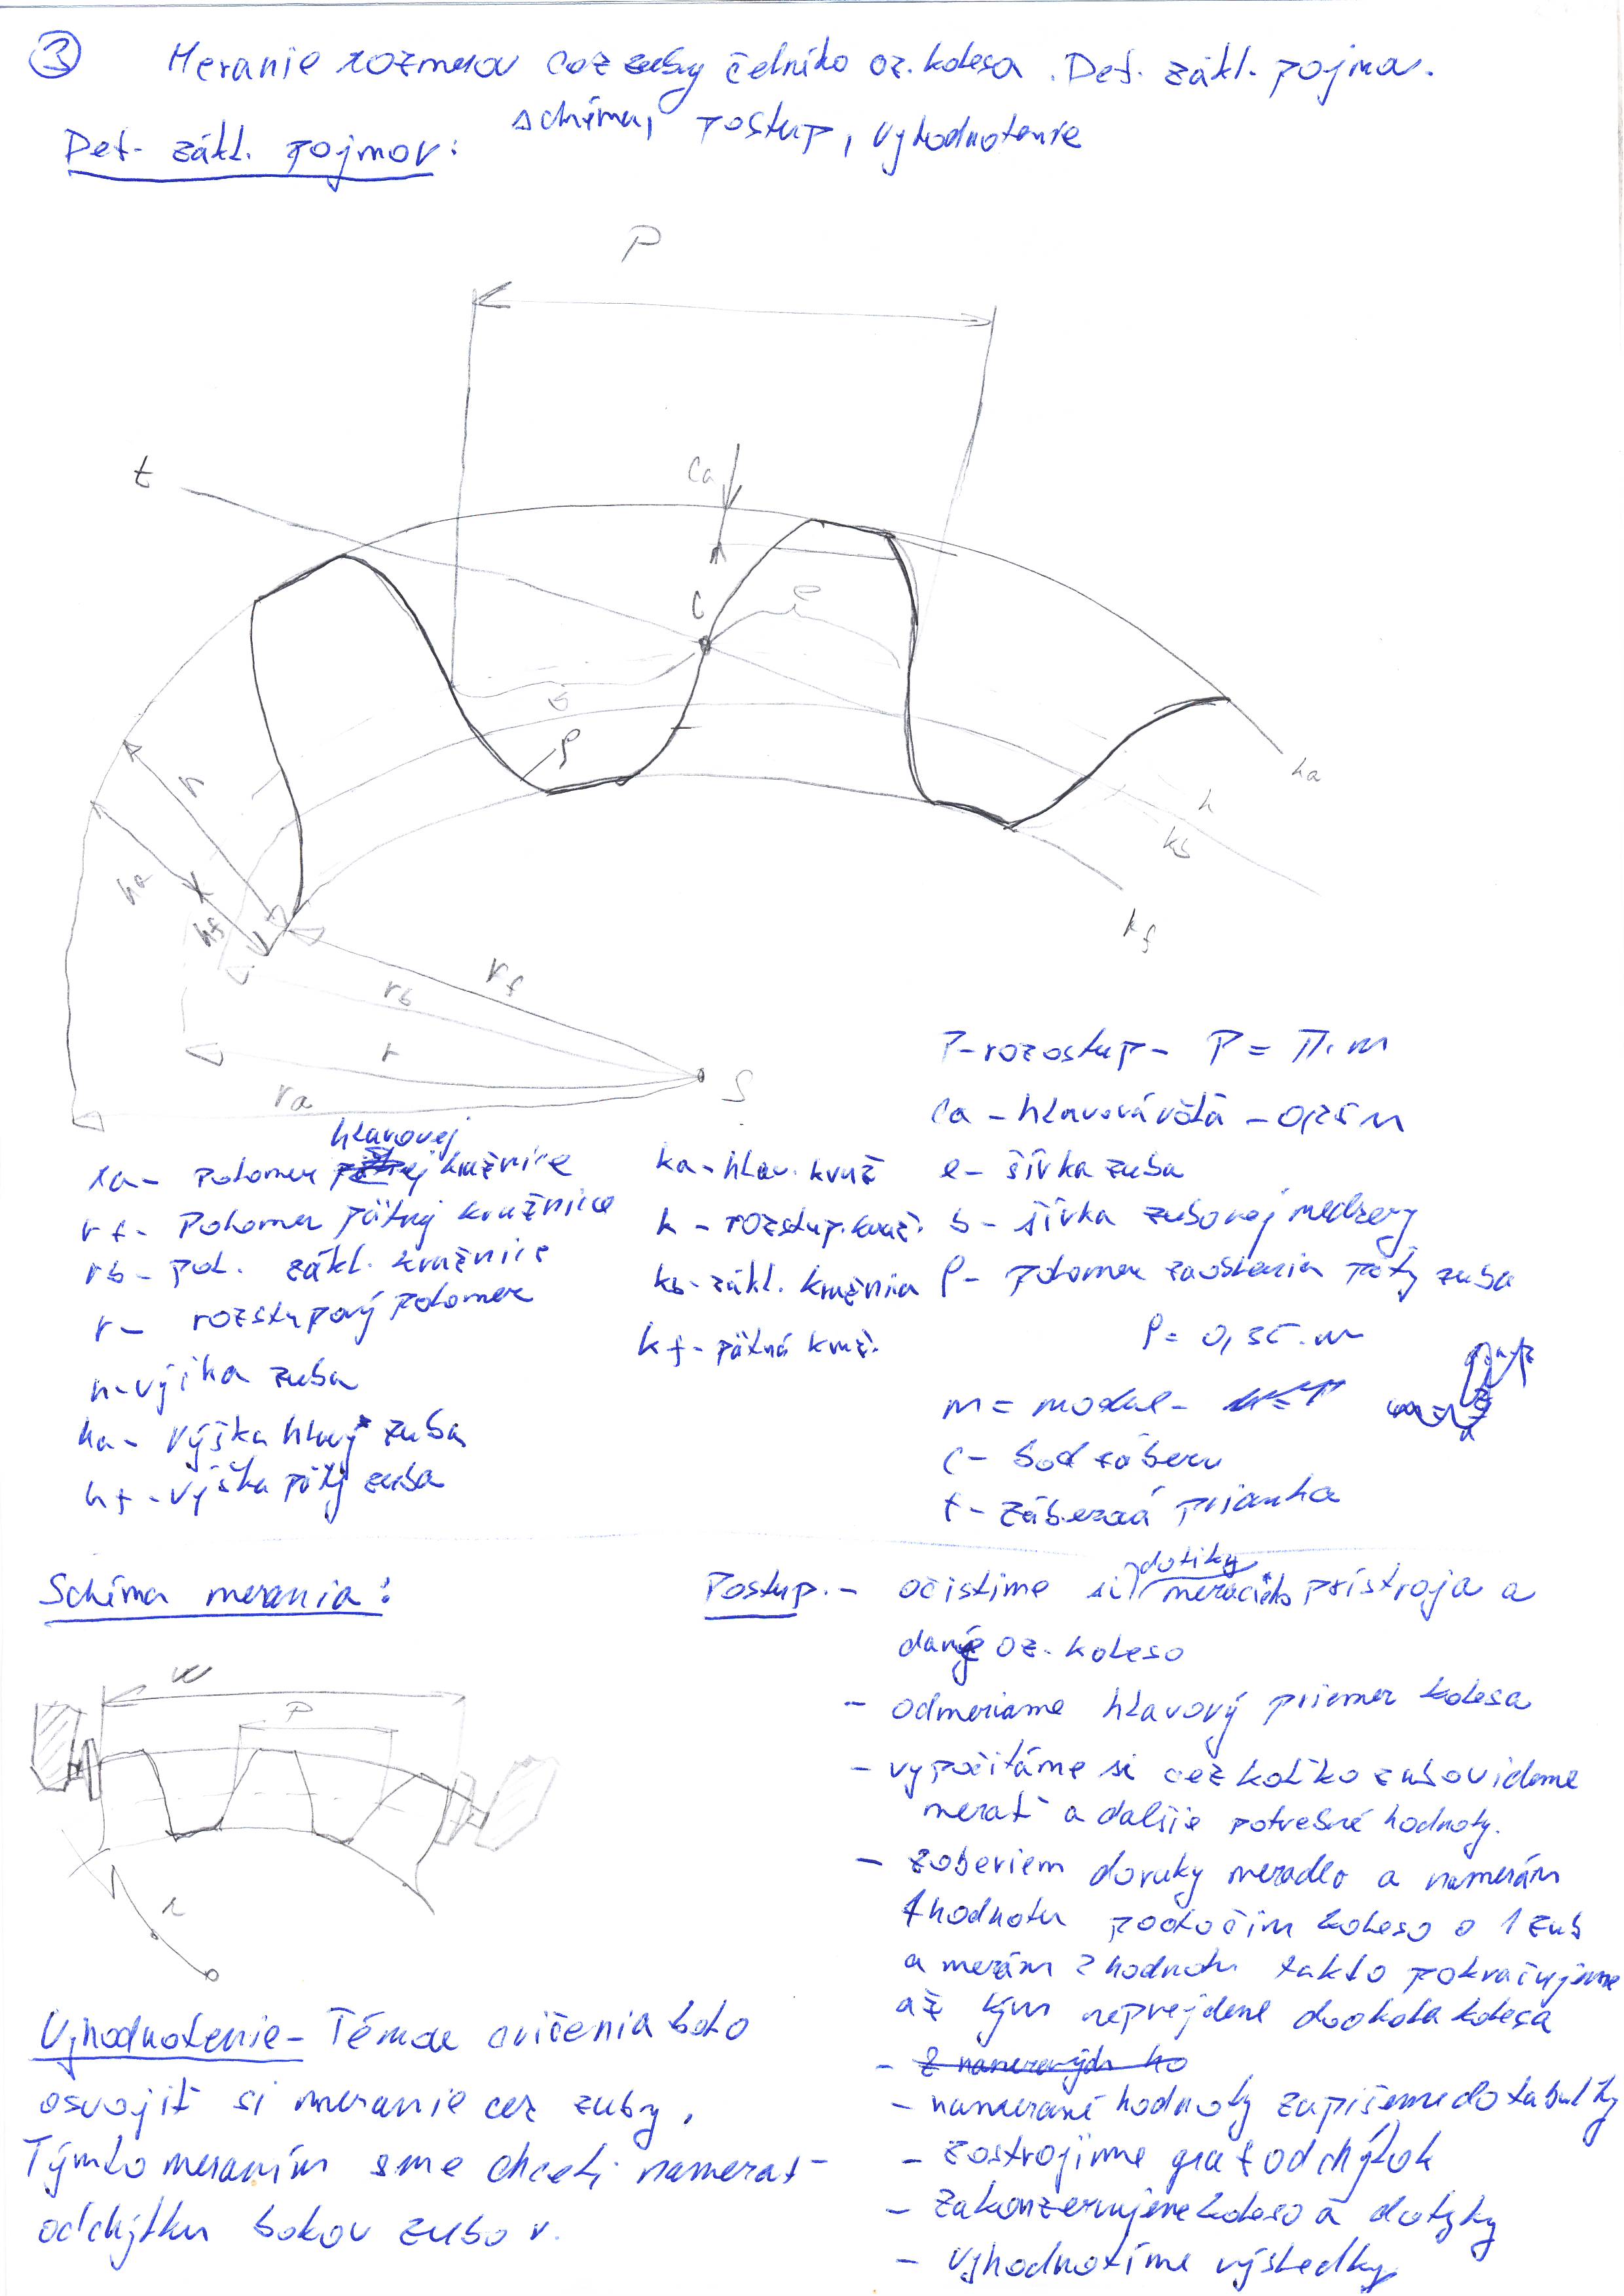 3 Meranie rozmeru cez zuby čelného oz. kolesa. Def. zákl. pojmov.
schéma, postup, vyhodnotenie
Def. zákl. pojmov:
P
t
ca
C
e
s
ρ
h
ha
hf
ha
k
kb
kf
rf
rb
r
ra
S
P-rozostup- P = π.m
ca - hlavová vôľa - 0,25 m
e - šírka zuba
s - šírka zubovej medzery
ρ - polomer zaoblenia päty zuba
ρ = 0,35.m
m = modul -
C - bod záberu
t - záberová priamka
hlavovej
ra - polomer kružnice
rf - Polomer pätnej kružnice
rb - pol. zákl. kružnice
r - rozstupový polomer
h - výška zuba
ha - výška hlavy zuba
hf - výška päty zuba
ka - hlav. kruž
k - rozstup. kruž.
kb - zákl. kružnica
kf - pätná kruž.
Schéma merania:
W
P
r
Postup. - očistíme si dotiky meracieho prístroja a
dané oz. koleso
- odmeriame hlavový priemer kolesa
- vypočítáme si cez koľko zubov ideme
merať a dalšie potrebné hodnoty.
- zoberiem doruky meradlo a namerám
1 hodnotu pootočím koleso o 1 zub
a merám 2 hodnotu takto pokračujeme
až kým neprejdeme dookola kolesa
- z nameraných ho
- namerané hodnoty zapíšeme do tabulky
- zostrojíme graf odchýlok
- zakonzervujeme koleso a dotyky
- vyhodnotíme výsledky
Vyhodnotenie - Témou cvičenia bolo
osvojiť si meranie cez zuby.
Týmto meraním sme chceli namerať
odchýlku bokov zubov.